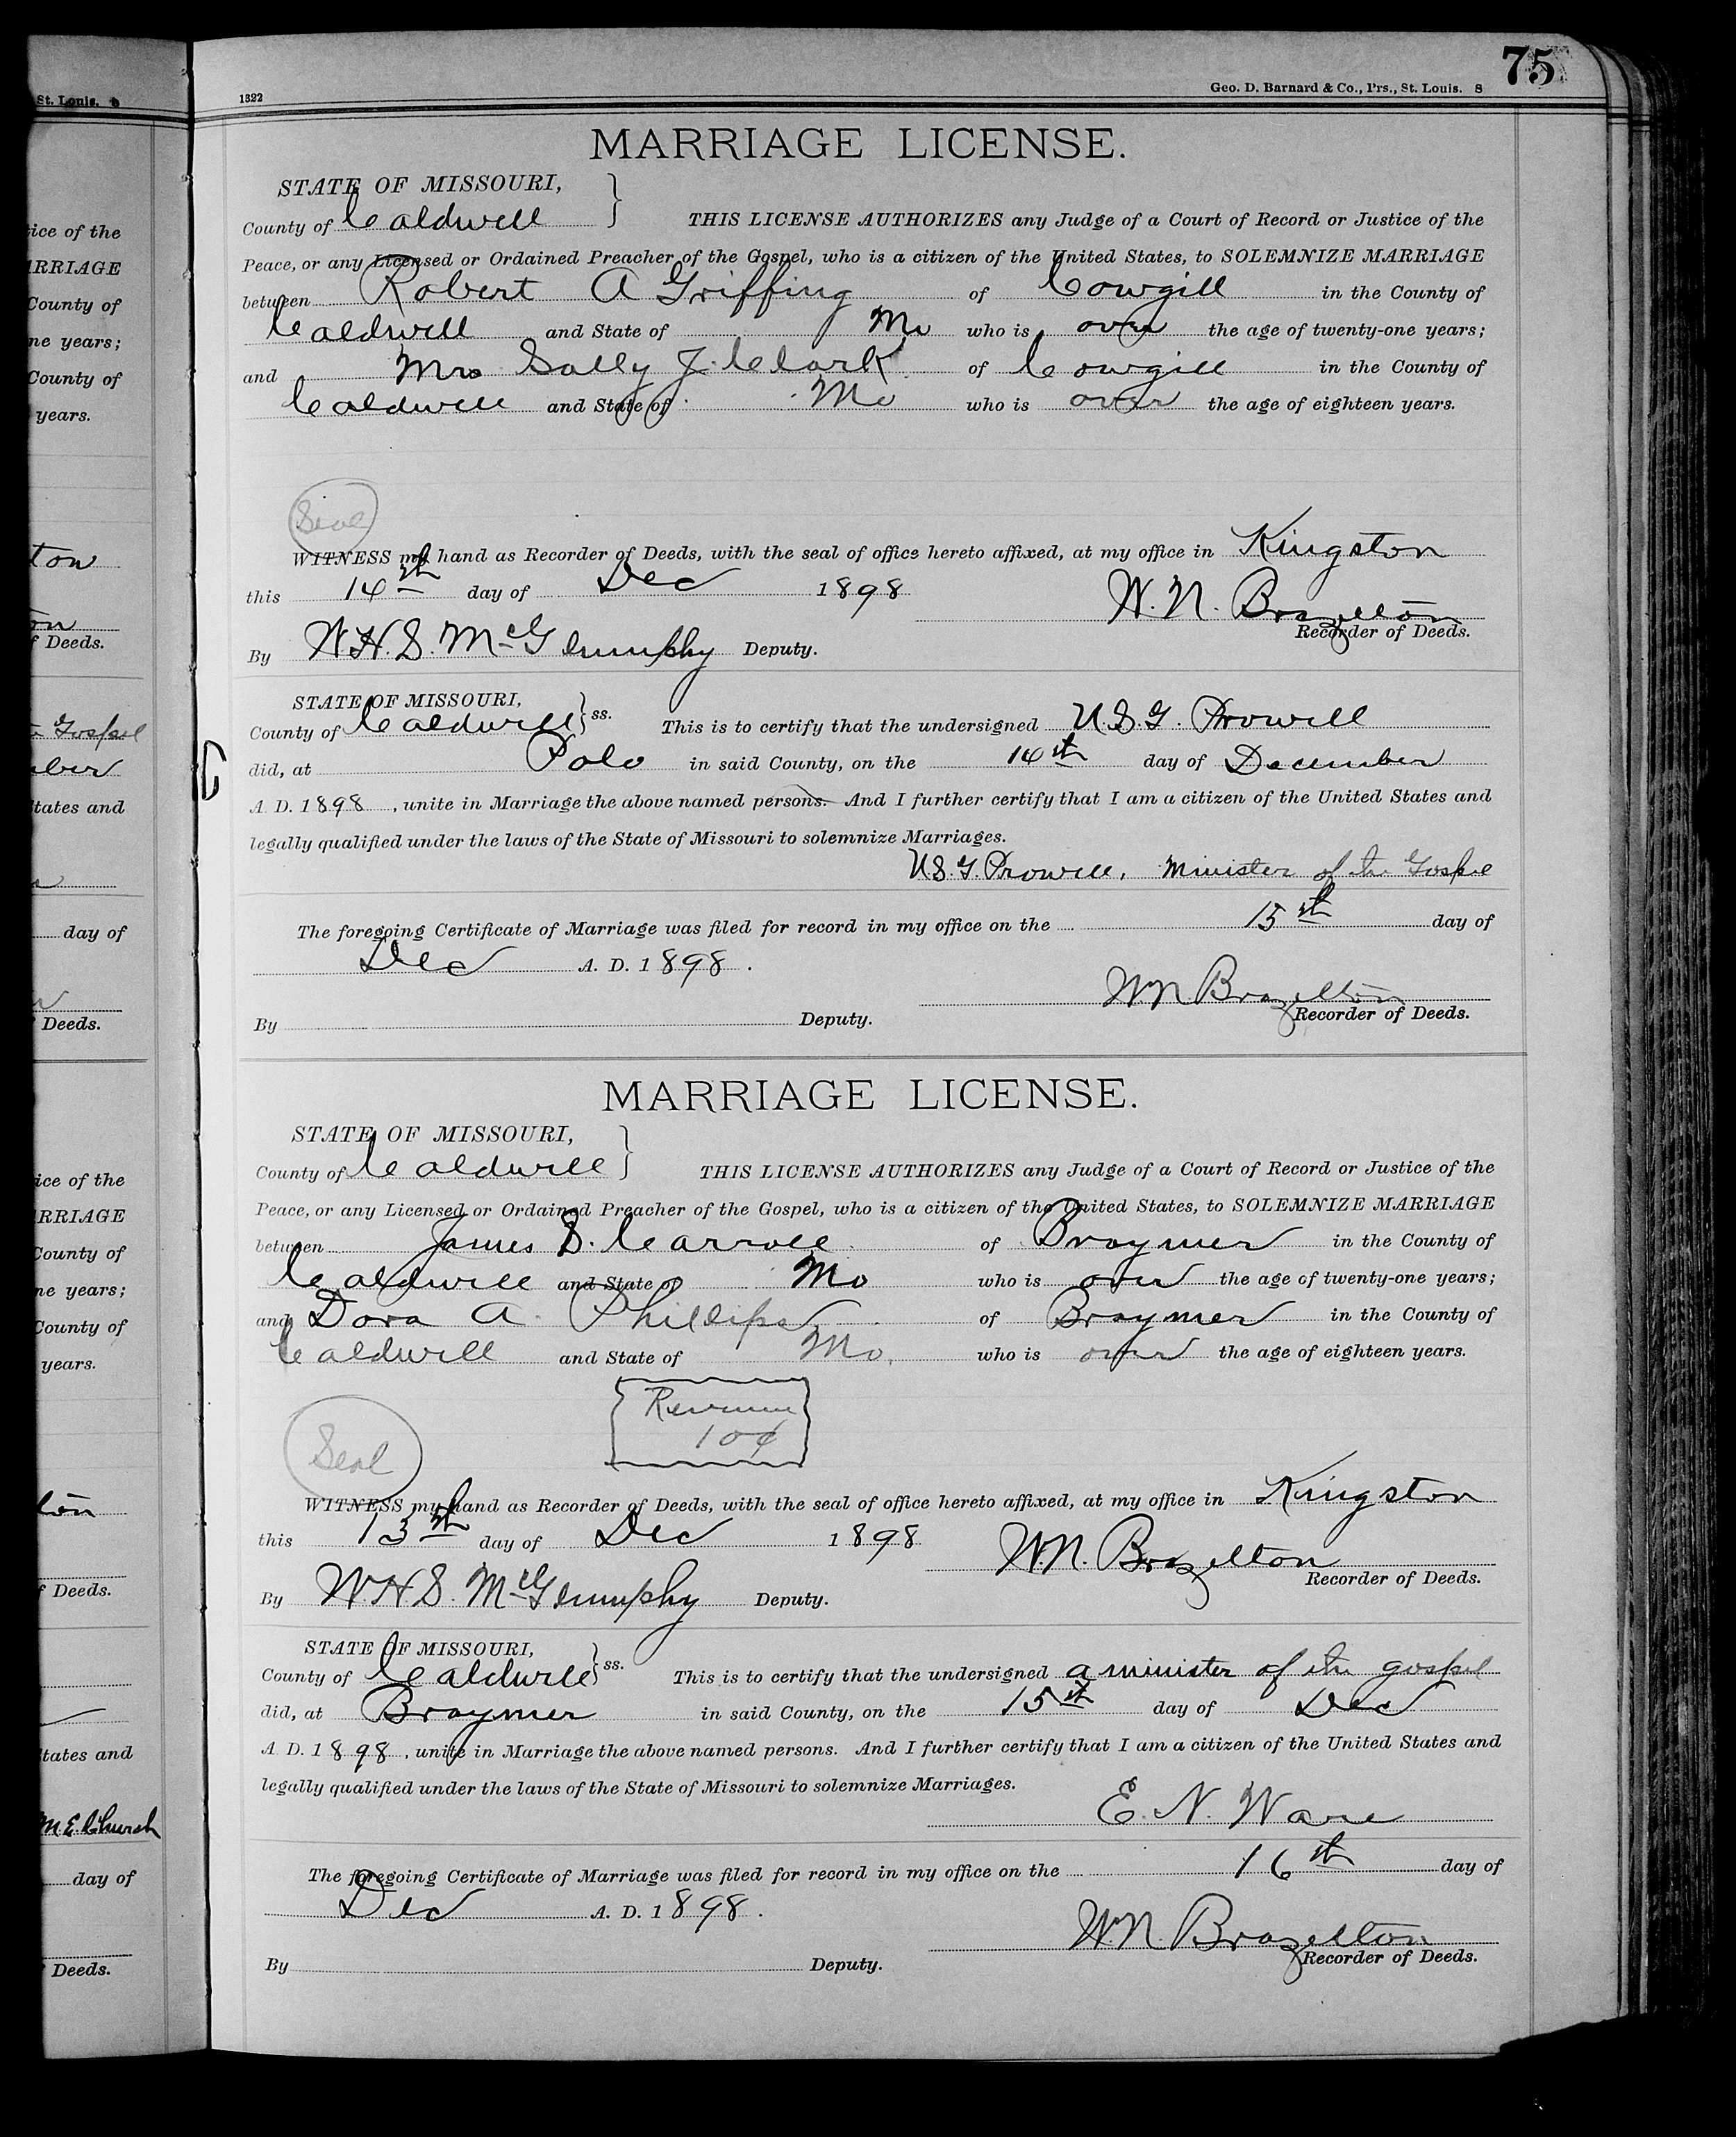 75
1322
Geo. D. Barnard & Co., Prs., St. Louis. 8
MARRIAGE LICENSE.
STATE OF MISSOURI,
County of Caldwell } THIS LICENSE AUTHORIZES any Judge of a Court of Record or Justice of the
Peace, or any Licensed or Ordained Preacher of the Gospel, who is a citizen of the United States, to SOLEMNIZE MARRIAGE
between Robert A Griffing of Cowgill in the County of
Caldwell and State of Mo who is over the age of twenty-one years;
and Mrs Sally J. Clark of Cowgill in the County of
Caldwell and State of Mo who is over the age of eighteen years.
Seal
WITNESS my hand as Recorder of Deeds, with the seal of office hereto affixed, at my office in Kingston
this 14th day of Dec 1898 W. N. Brazelton
Recorder of Deeds.
By W. H. S. McGlumphy Deputy.
STATE OF MISSOURI,
County of Caldwell } ss. This is to certify that the undersigned U. S. G. Prowell
did, at Polo in said County, on the 14th day of December
A. D. 1898, unite in Marriage the above named persons. And I further certify that I am a citizen of the United States and
legally qualified under the laws of the State of Missouri to solemnize Marriages.
U. S. G. Prowell, Minister of the Gospel
The foregoing Certificate of Marriage was filed for record in my office on the 15th day of
Dec A. D. 1898.
W N Brazelton
Recorder of Deeds.
By Deputy.
MARRIAGE LICENSE.
STATE OF MISSOURI,
County of Caldwell } THIS LICENSE AUTHORIZES any Judge of a Court of Record or Justice of the
Peace, or any Licensed or Ordained Preacher of the Gospel, who is a citizen of the United States, to SOLEMNIZE MARRIAGE
between James S. Carroll of Braymer in the County of
Caldwell and State of Mo who is over the age of twenty-one years;
and Dora A. Phillips of Braymer in the County of
Caldwell and State of Mo. who is over the age of eighteen years.
Revenue
10¢
Seal
WITNESS my hand as Recorder of Deeds, with the seal of office hereto affixed, at my office in Kingston
this 13th day of Dec 1898 W. N. Brazelton
Recorder of Deeds.
By W. H. S. McGlumphy Deputy.
STATE OF MISSOURI,
County of Caldwell } ss. This is to certify that the undersigned a minister of the gospel
did, at Braymer in said County, on the 15th day of Dec
A. D. 1898, unite in Marriage the above named persons. And I further certify that I am a citizen of the United States and
legally qualified under the laws of the State of Missouri to solemnize Marriages.
E. N. Ware
The foregoing Certificate of Marriage was filed for record in my office on the 16th day of
Dec A. D. 1898.
W. N. Brazelton
Recorder of Deeds.
By Deputy.